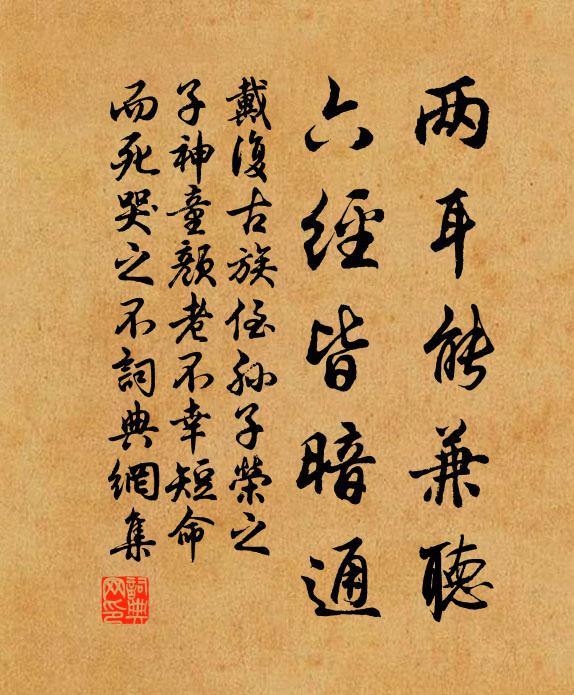 两耳能兼聽
六經皆暗通
戴復古族侄孙子榮之
子神童顏老不幸短命
而死哭之不詞典網集
詞典網印